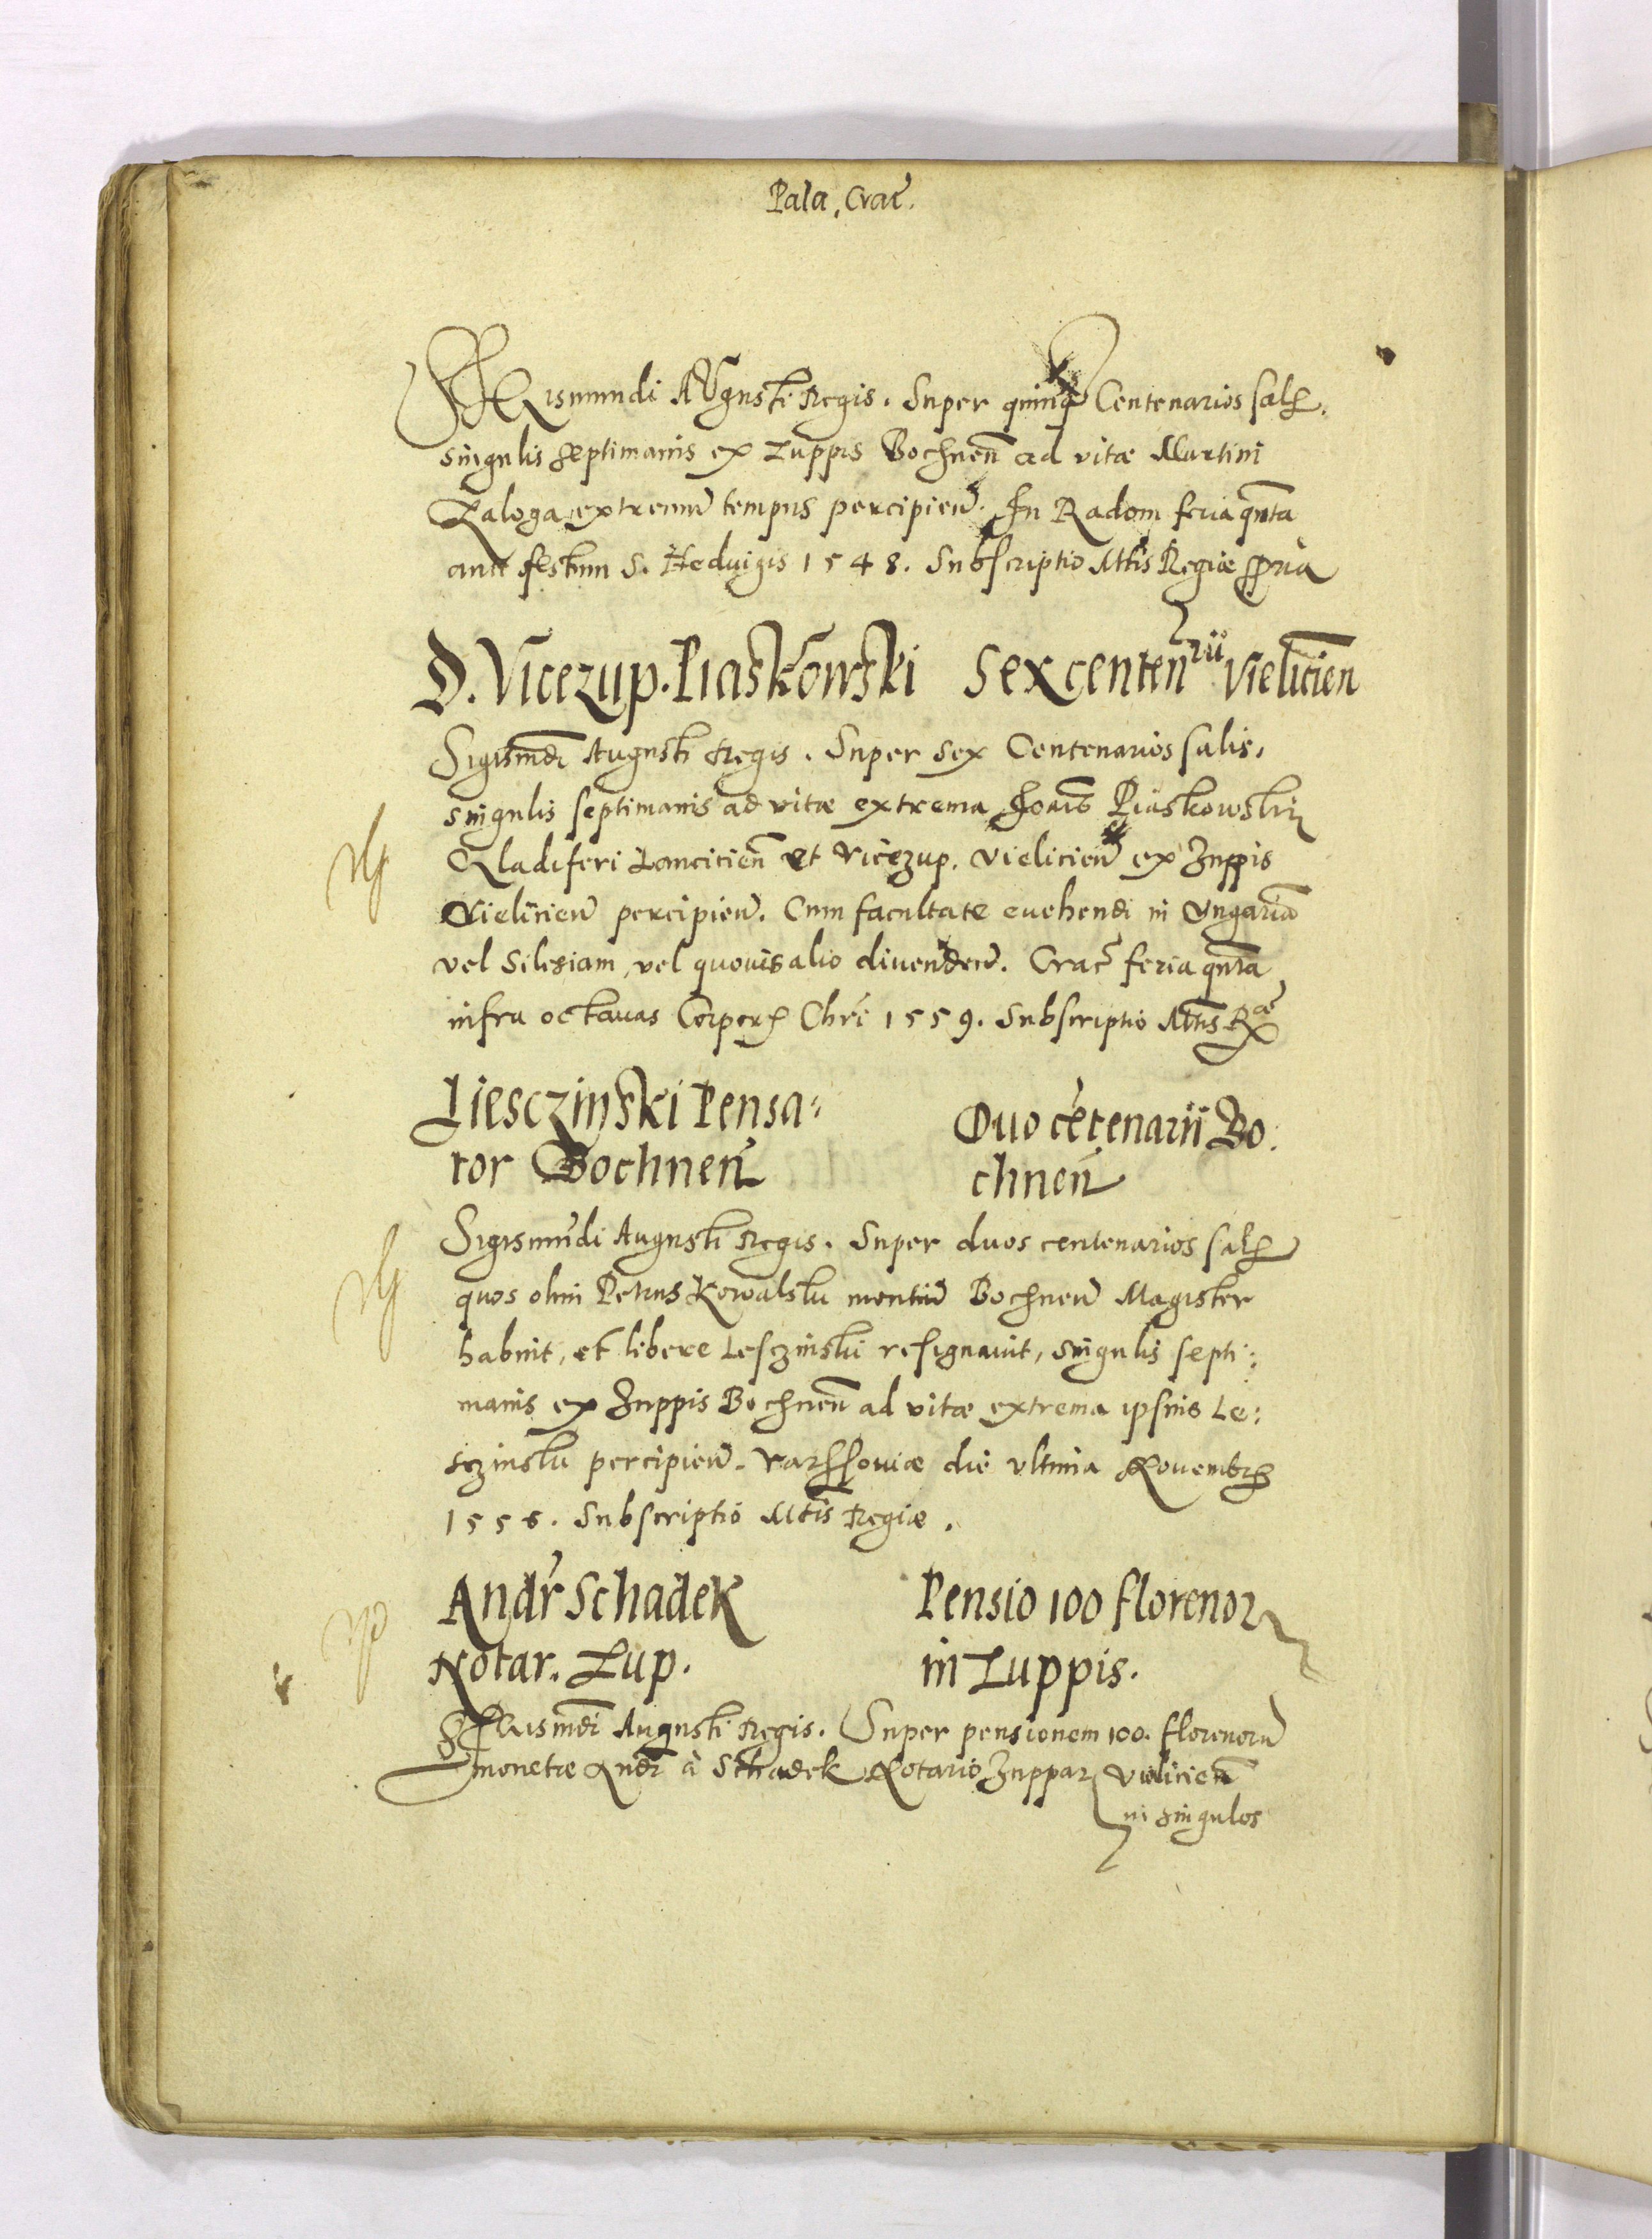 Pala. Crac̃.
Sigismundi AVgusti Regis. Super quinq̃ Centenarios salis.
singulis septimanis ex Zuppis Bochneñ ad vitæ Martini
Zaloga extremũ tempus percipieñ. In Radom feria qñta
ante festum S. Heduigis 1548. Subscriptio Mtis Regiæ ꝓria
D. Vicezup. Piaskowski Sex centenrii Vielicieñ
Sigismdi Augusti Regis. Super sex Centenarios salis.
singulis septimanis ad vitæ extrema Joañis Piaskowskii
Gladiferi Lancicieñ et Vicezup. Vielicieñ ex Zuppis
Vielicieñ percipieñ. Cum facultate euehendi in Vngariã
vel Silesiam, vel quouis alio diuendeñ. Crac̃ feria qñta
infra octauas Corporis Chri 1559. Subscriptio Mtis Ræ
Liesczinski Pensa:
tor Bochneñ
Duo cẽtenarii Bo:
chneñ
Sigismũdi Augusti Regis. Super duos centenarios salis
quos olim Petrus Kowalski montiũ Bochneñ Magister
habuit, et libere Lesczinski resignauit, singulis septi:
manis ex Zuppis Bochneñ ad vitæ extrema ipsius Le:
sczinski percipieñ. Varssouiæ die vltima Nouembris
1556. Subscriptio Mtis Regiæ.
Andr̃ Schadek
Notar. Zup.
Pensio 100 florenor
in Zuppis.
Sigismdi Augusti Regis. Super pensionem 100. florenorũ
monetæ Andr̃ à Schadek Notario Zuppar Vielicieñ
in singulos